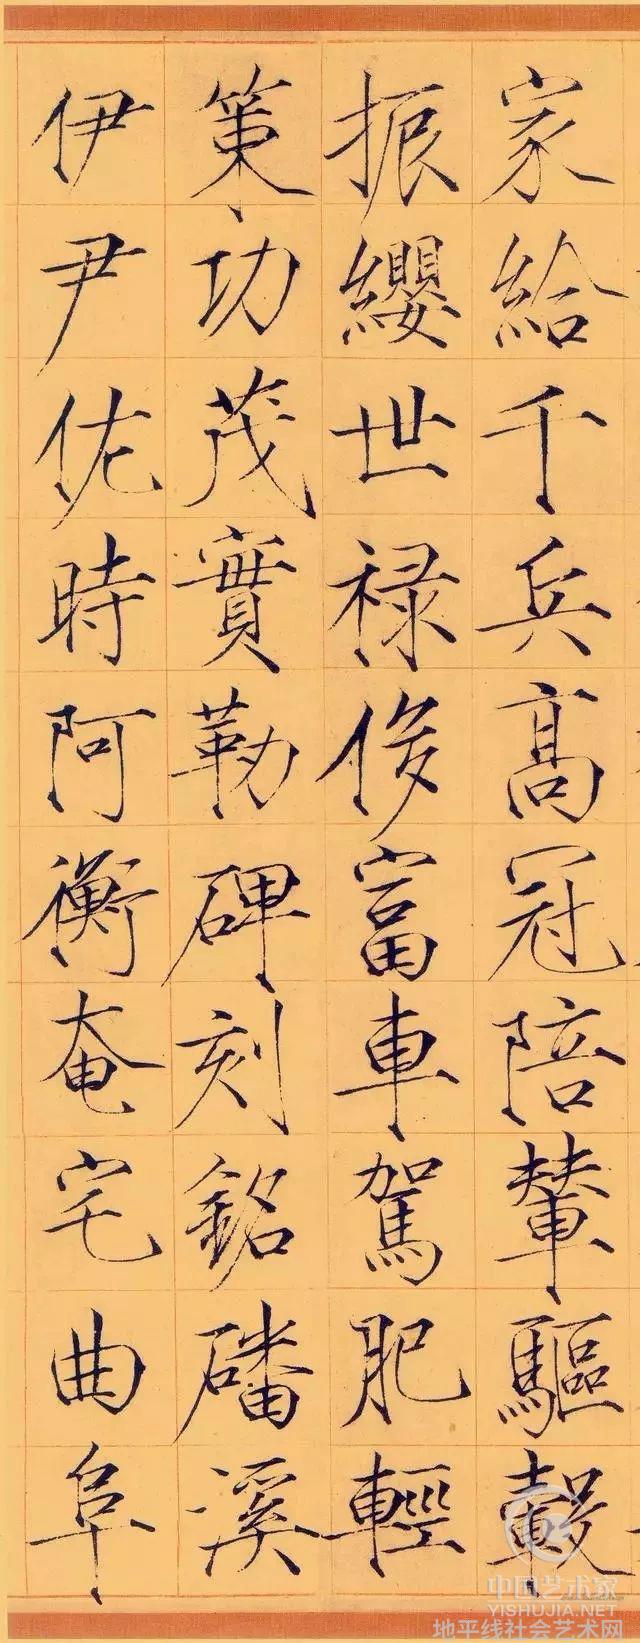 家給千兵高冠陪輦驅轂
振纓世禄侈富車駕肥輕
策功茂實勒碑刻銘磻溪
伊尹佐時阿衡奄宅曲阜
中国艺术家
YISHUJIA.NET
地平线社会艺术网